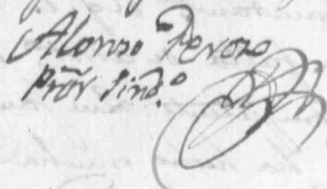 Alonso Perozo
Pror Sind.o